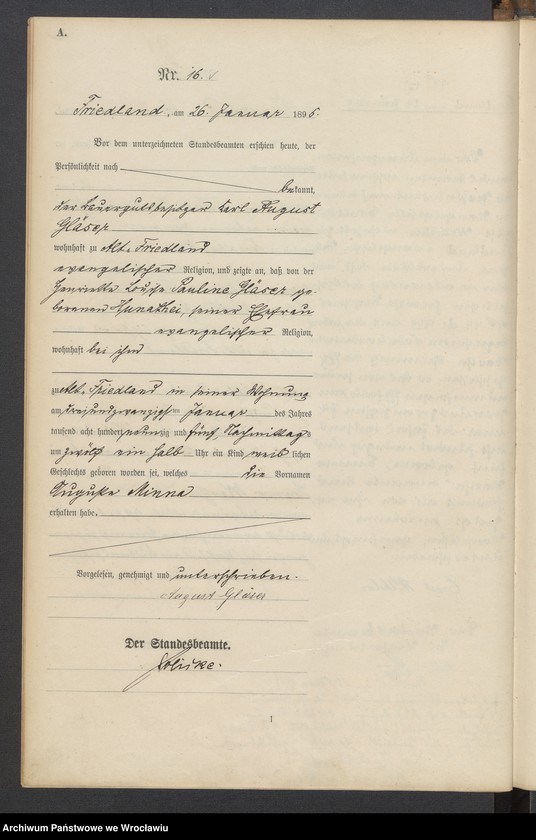 A.
Nr. 16.
Friedland, am 26. Januar 1895.
Vor dem unterzeichneten Standesbeamten erschien heute, der
Persönlichkeit nach
bekannt,
der Bauergutsbesitzer Karl August
Gläser
wohnhaft zu Alt-Friedland
evangelischer Religion, und zeigte an, daß von der
Henriette Louise Pauline Gläser ge-
borenen seiner Ehefrau
evangelischer Religion,
wohnhaft bei ihm
zu Alt-Friedland in seiner Wohnung
am dreiundzwanzigsten Januar des Jahres
tausend acht hundert neunzig und fünf, Nachmittags
um zwölf ein halb Uhr ein Kind weiblichen
Geschlechts geboren worden sei, welches die Vornamen
Auguste Minna
erhalten habe.
Vorgelesen, genehmigt und unterschrieben.
August Gläser
Der Standesbeamte.
1
Archiwum Państwowe we Wrocławiu